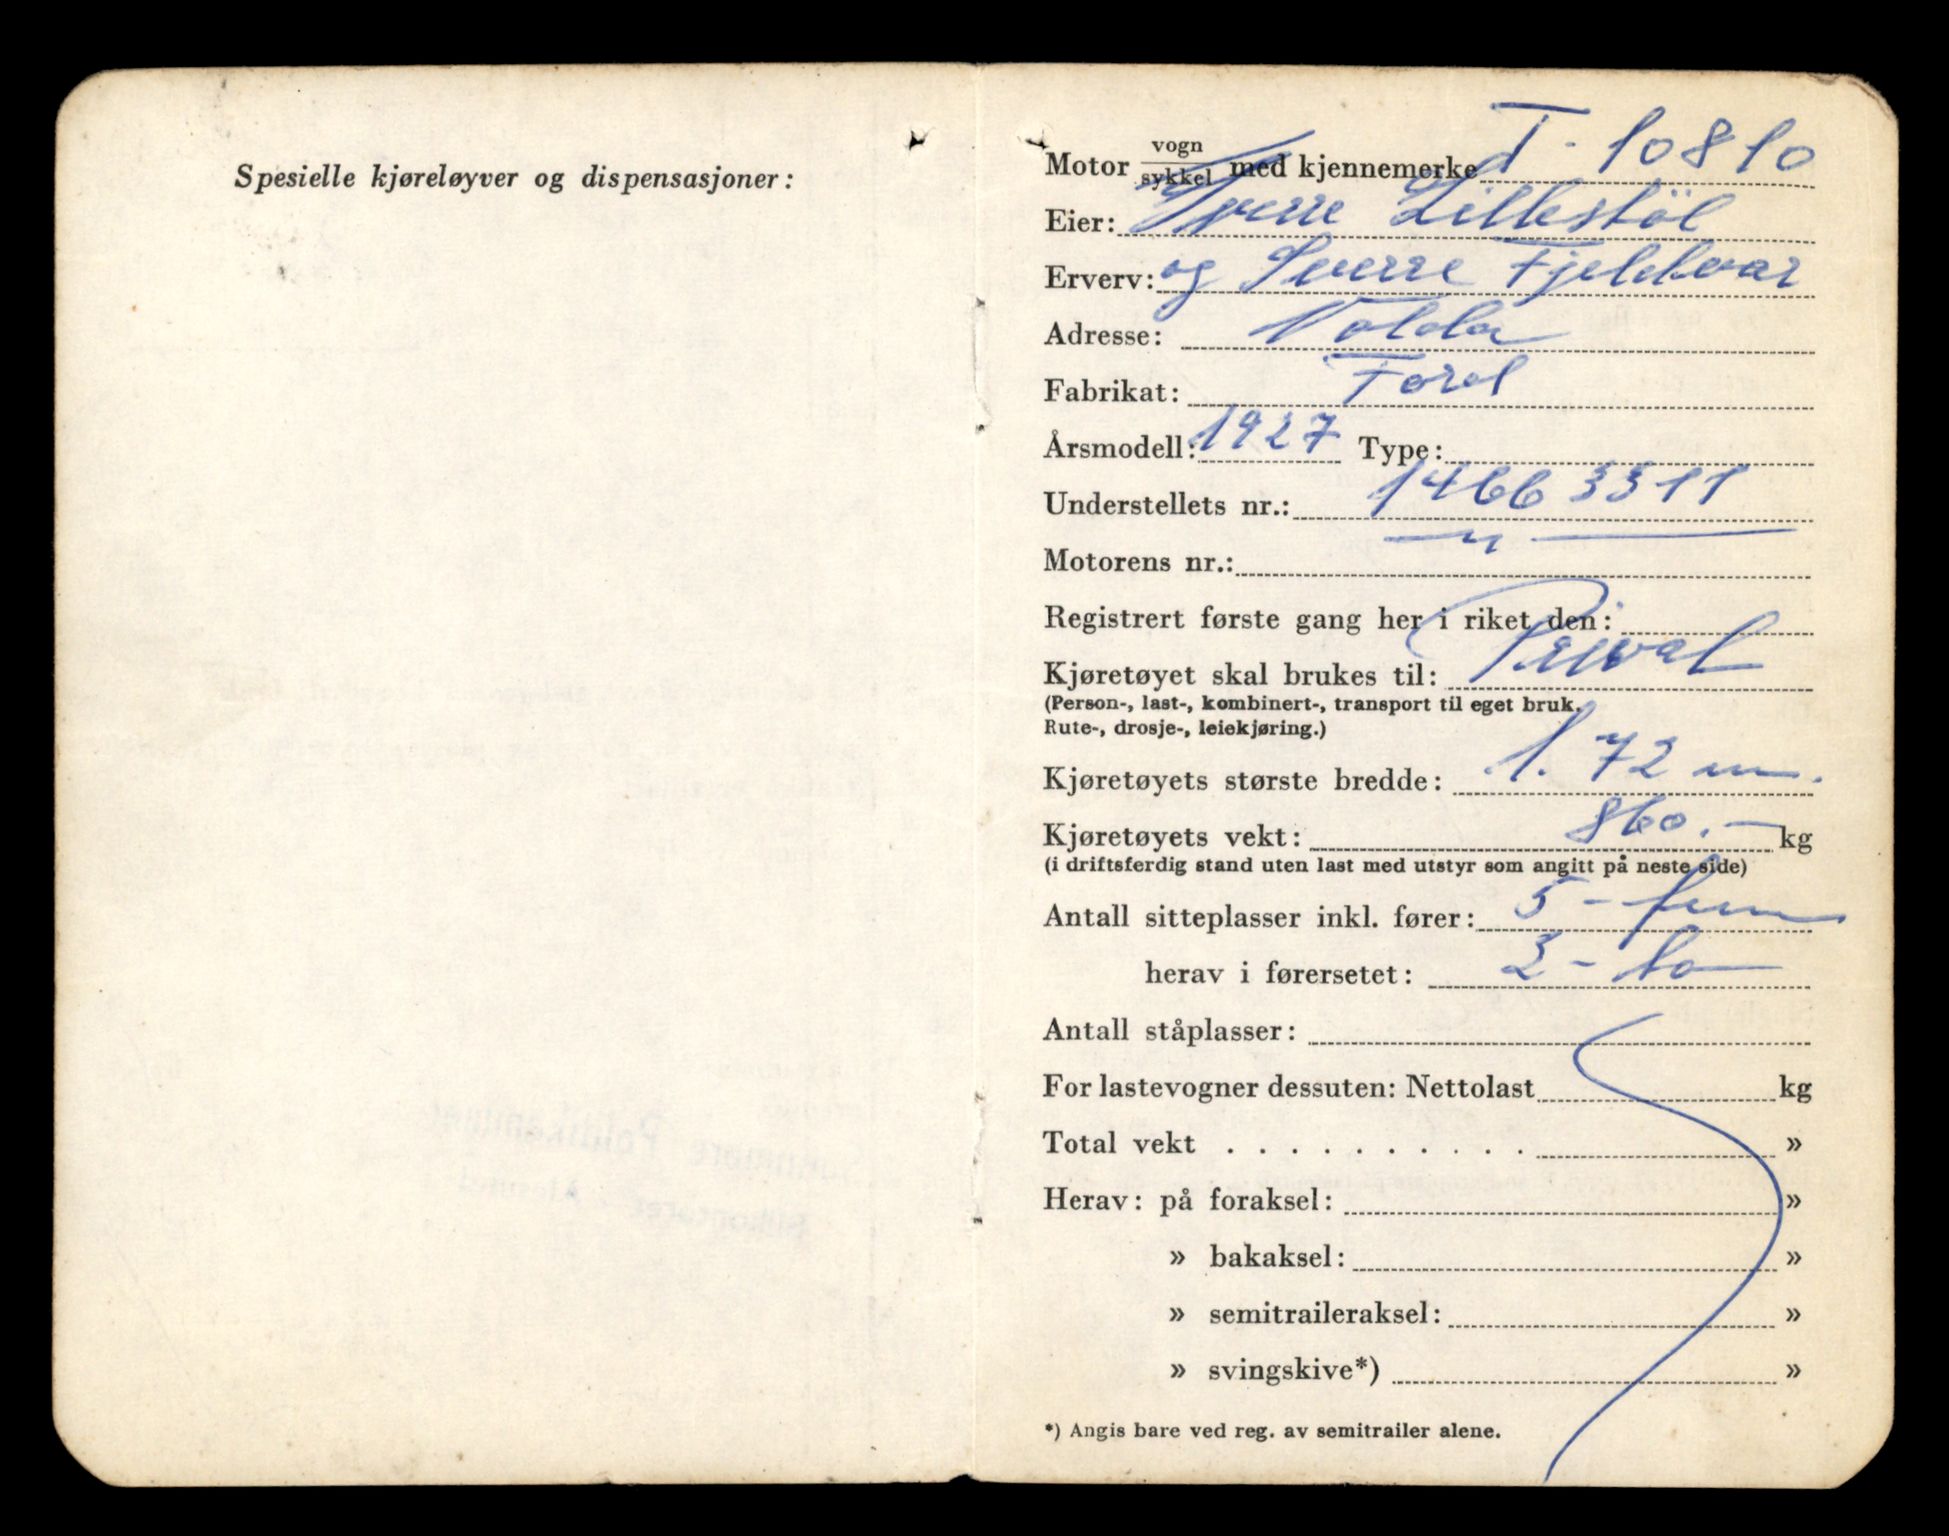 Spesielle kjøreløyver og dispensasjoner:
Motor vogn/sykkel med kjennemerke T-10810
Eier: Sverre Lillestöl
Erverv: og Sverre Fjeldvær
Adresse: Volda
Fabrikat: Ford
Årsmodell: 1927 Type:
Understellets nr.: 14663311
Motorens nr.:
Registrert første gang her i riket den:
Kjøretøyet skal brukes til: Privat
(Person-, last-, kombinert-, transport til eget bruk.
Rute-, drosje-, leiekjøring.)
Kjøretøyets største bredde: 1.72 m.
Kjøretøyets vekt: 860.- kg
(i driftsferdig stand uten last med utstyr som angitt på neste side)
Antall sitteplasser inkl. fører: 5 - fem
herav i førersetet: 2 - to
Antall ståplasser:
For lastevogner dessuten: Nettolast kg
Total vekt . . . . . . . . . . »
Herav: på foraksel: »
» bakaksel: »
» semitraileraksel: »
» svingskive*) »
*) Angis bare ved reg. av semitrailer alene.